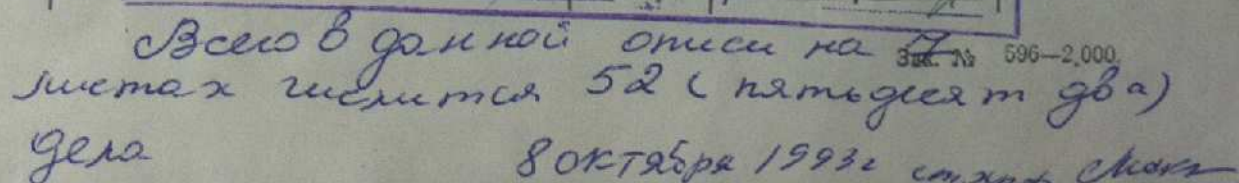 Всего в данной описи на 7
Зак. № 596—2.000.
листах числится 52 (пятьдесят два)
дела
8 октября 1993г